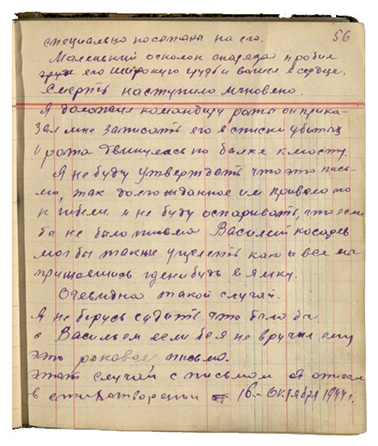 56
специально послана на его.
Маленький осколок снаряда пробил
его широкую грудь и вошел в сердце.
Смерть наступило мгновено.
Я доложил командиру роты он прика-
зал мне записать его в списки убитых
и рота двинулась по балке к мосту.
Я не буду утверждать что это пись-
мо, так долго жданное им привело его
к гибели и не буду оспаривать, что если
бы не было письма Василий Косарев
мог бы также уцелеть как и все мы
прижавшись где нибудь в ямку.
Очевидна такой случай.
Я не берусь судить что было бы
с Васильем если бы я не вручил ему
это роковое письмо.
Этот случай с письмом я описал
в стихотворении 16 - октября 1944 г.